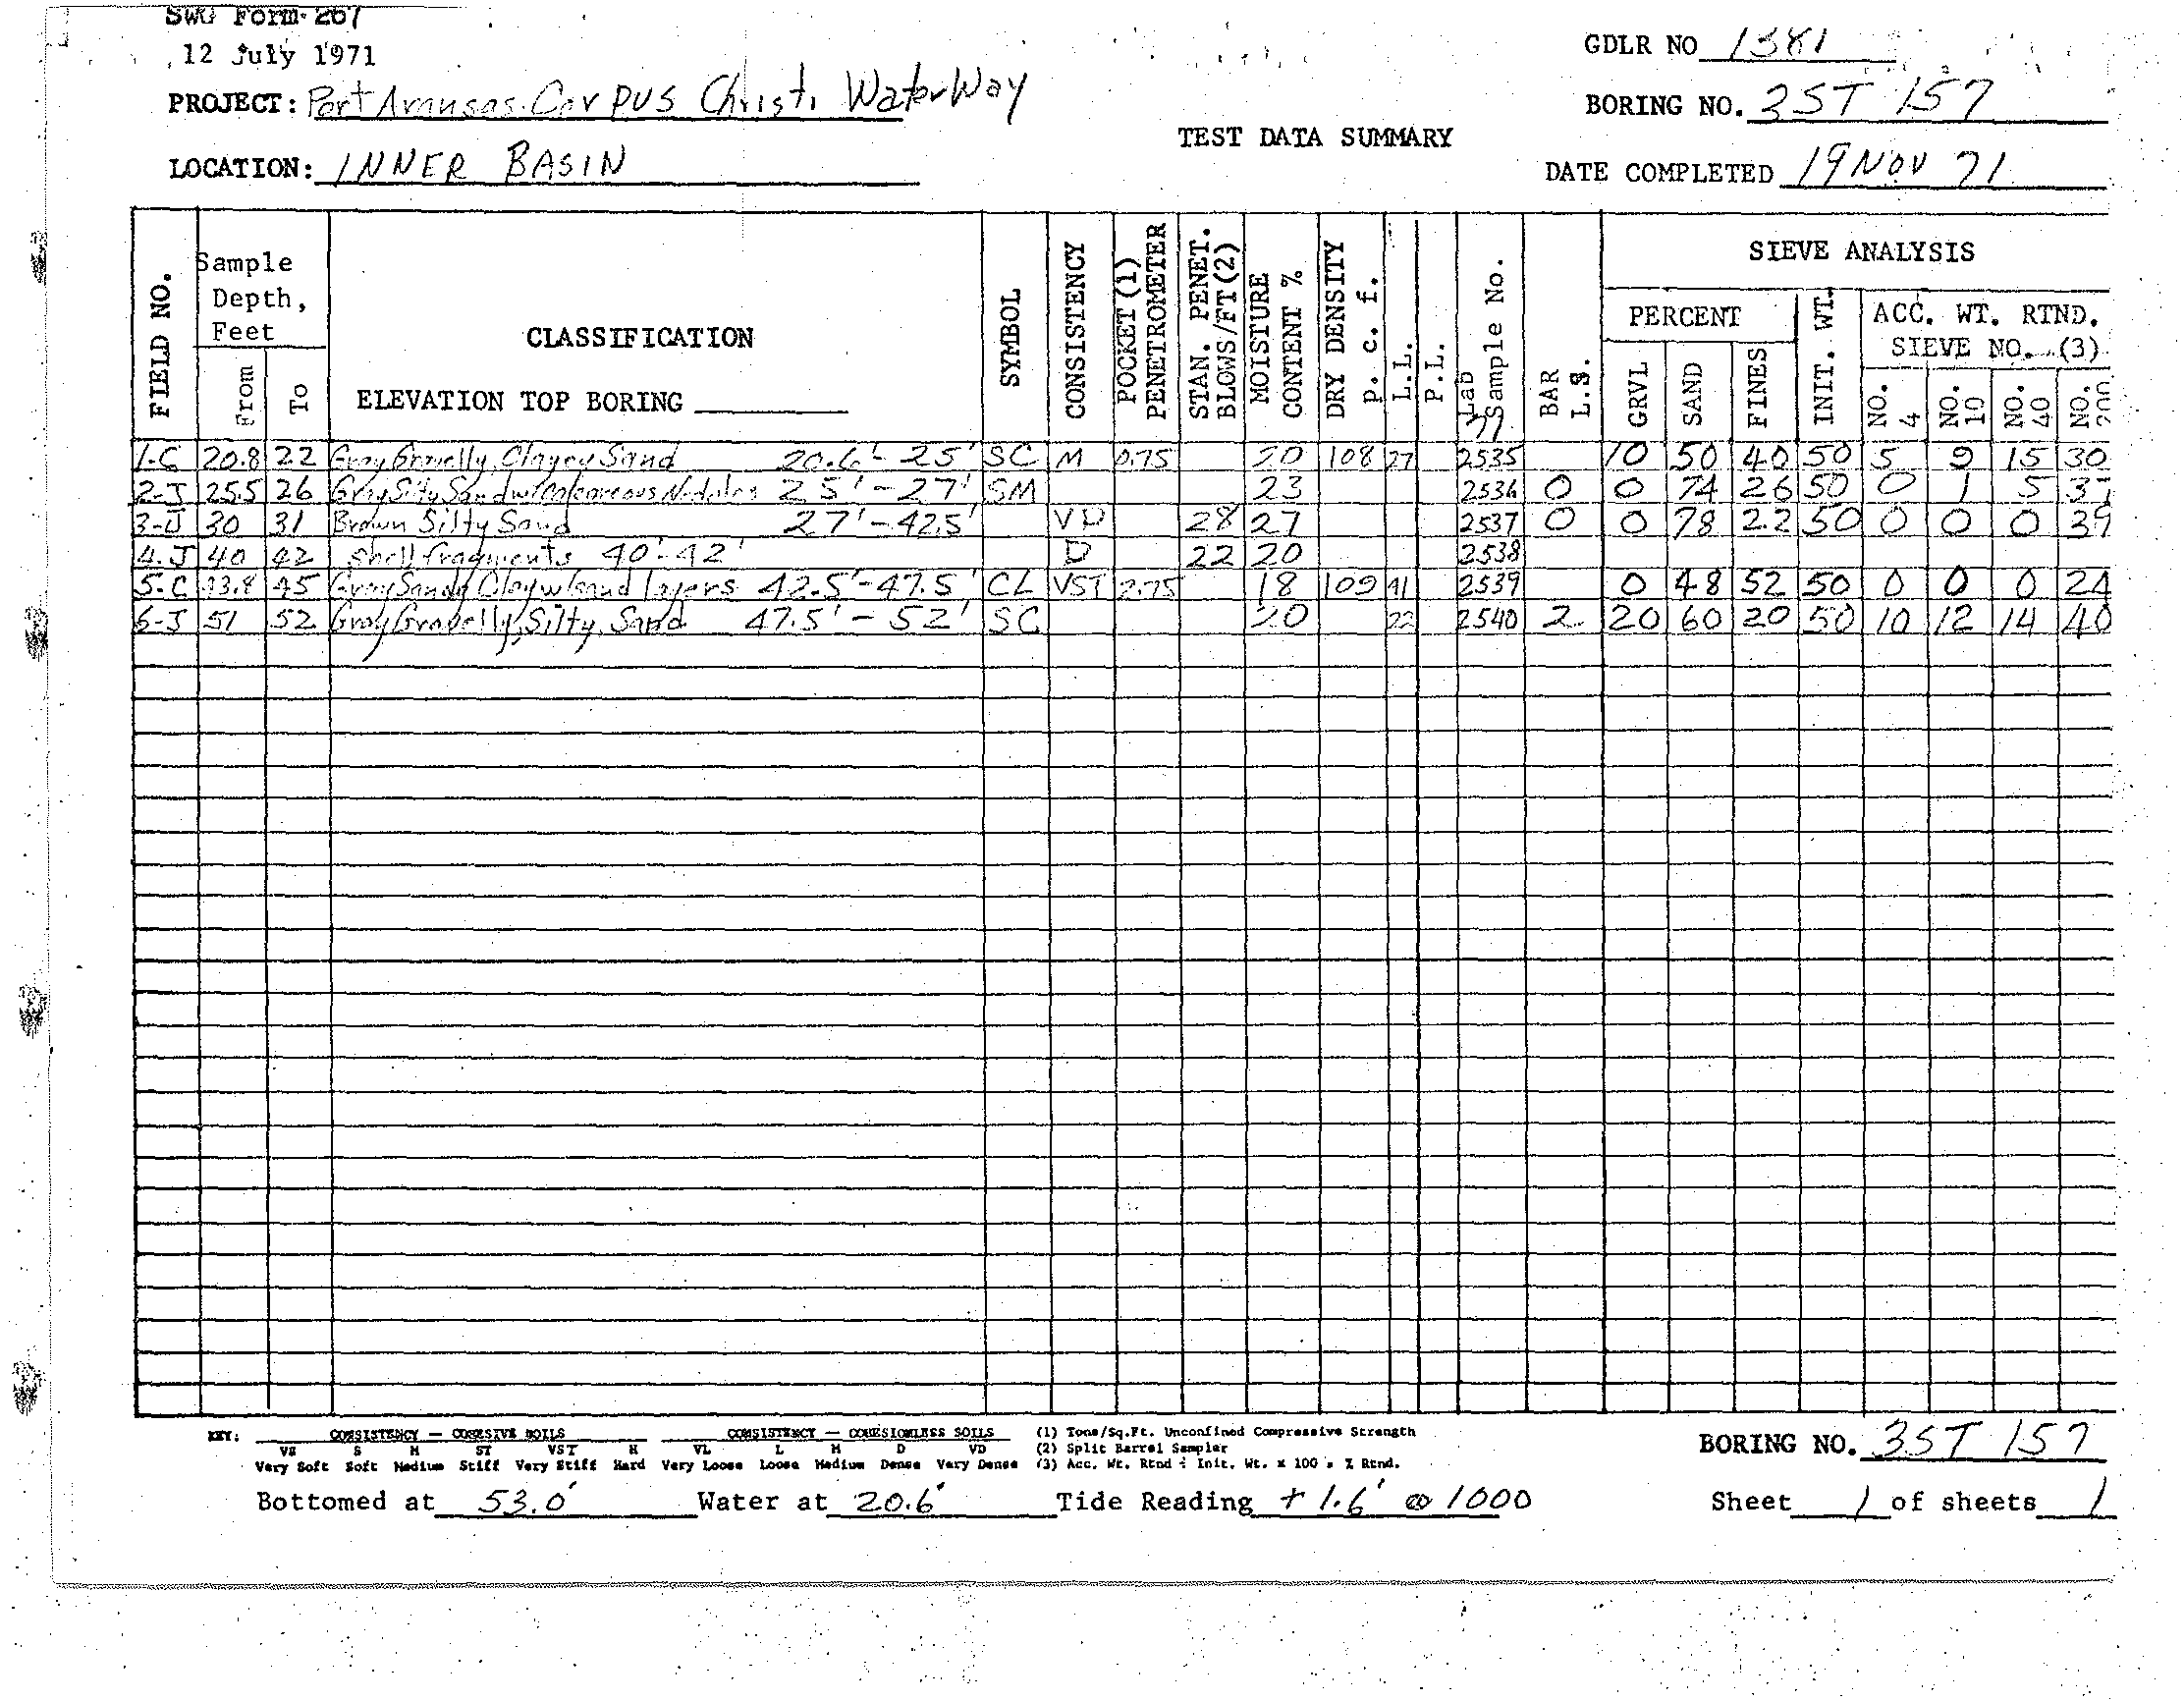 SWG Form 267
12 July 1971
GDLR NO 1381
PROJECT: Port Aransas-Corpus Christi WaterWay
BORING NO. 3ST 157
TEST DATA SUMMARY
LOCATION: INNER BASIN
DATE COMPLETED 19 NOV 71
FIELD NO.
Sample Depth, Feet
From
To
CLASSIFICATION
ELEVATION TOP BORING
SYMBOL
CONSISTENCY
POCKET (1) PENETROMETER
STAN. PENET. BLOWS/FT (2)
MOISTURE CONTENT %
DRY DENSITY p. c. f.
L.L.
P.L.
Lab Sample No.
71
BAR L.S.
SIEVE ANALYSIS
PERCENT
GRVL
SAND
FINES
INIT. WT.
ACC. WT. RTND.
SIEVE NO. (3)
NO. 4
NO. 10
NO. 40
NO. 200
1-C 20.8 22 Gray Gravelly, Clayey Sand 20.6'- 25' SC M 0.75 20 108 27 2535 10 50 40 50 5 9 15 30
2-J 25.5 26 Gray Silty Sand w/Calcareous Nodules 25'-27' SM 23 2536 0 0 74 26 50 0 1 5 37
3-J 30 31 Brown Silty Sand 27'-42.5' VD 28 27 2537 0 0 78 22 50 0 0 0 39
4-J 40 42 shell fragments 40'-42' D 22 20 2538
5-C 43.8 45 Gray Sandy Clay w/sand layers 42.5'-47.5' CL VST 2.75 18 109 41 2539 0 48 52 50 0 0 0 24
6-J 51 52 Gray Gravelly, Silty, Sand 47.5' - 52' SC 20 22 2540 2 20 60 20 50 10 12 14 40
KEY: CONSISTENCY — COHESIVE SOILS CONSISTENCY — COHESIONLESS SOILS (1) Tons/Sq.Ft. Unconfined Compressive Strength
VS S M ST VST H VL L M D VD (2) Split Barrel Sampler
Very Soft Soft Medium Stiff Very Stiff Hard Very Loose Loose Medium Dense Very Dense (3) Acc. Wt. Rtnd ÷ Init. Wt. x 100 = % Rtnd.
BORING NO. 3ST 157
Bottomed at 53.0' Water at 20.6' Tide Reading + 1.6' @ 1000 Sheet 1 of sheets 1